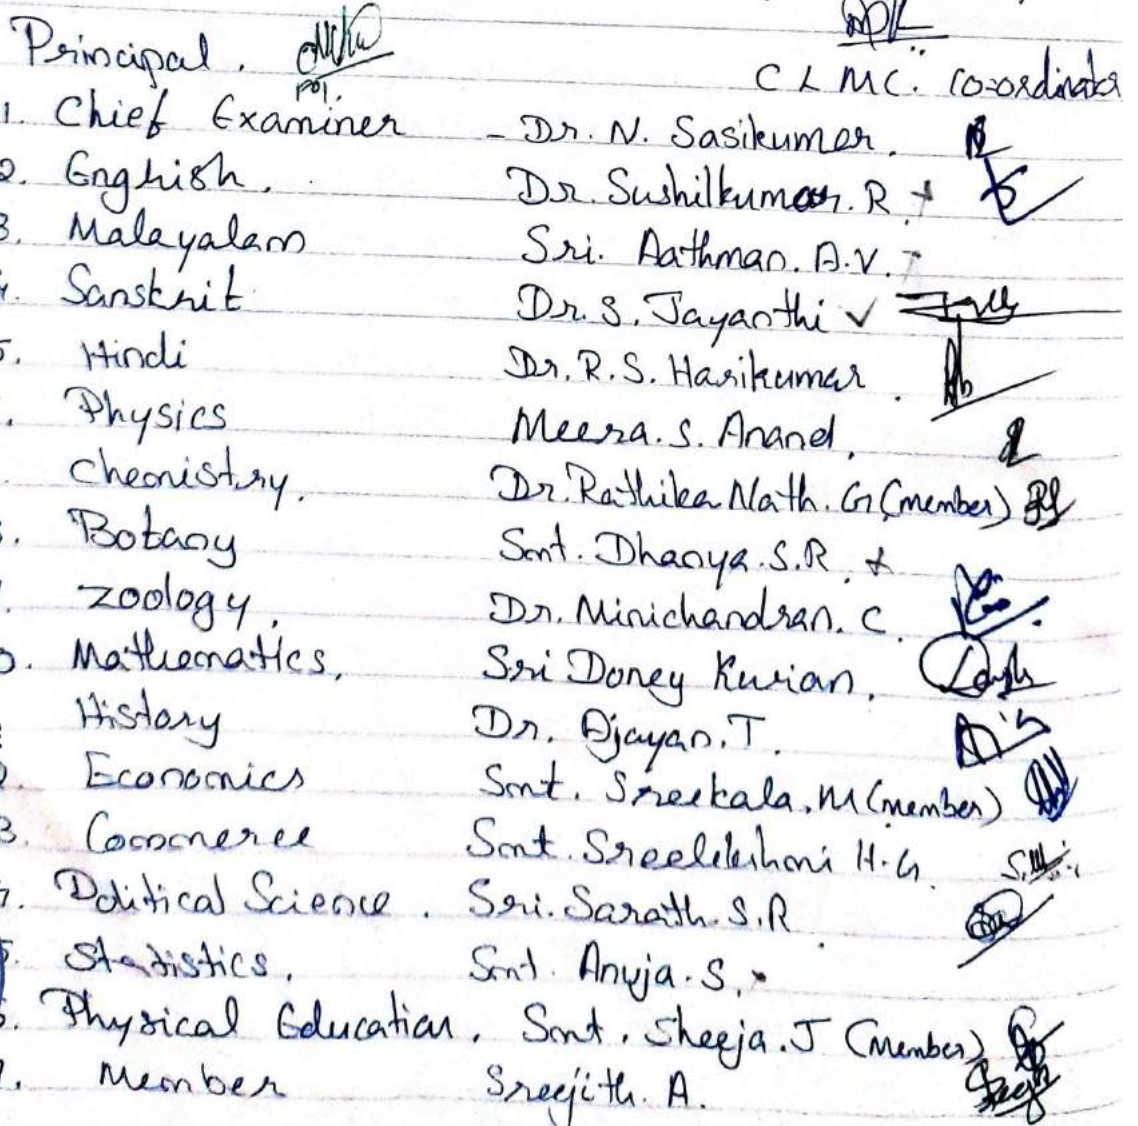 Principal.
CLMC. Co-ordinator
1. Chief Examiner - Dr. N. Sasikumar.
2. Enghish. Dr. Sushilkumar. R
3. Malayalam Sri. Aathman. A.V.
4. Sanskrit Dr. S. Jayanthi ✓
5. Hindi Dr. R. S. Harikumar.
. Physics Meera. S. Anand,
Chemistry. Dr. Rathika Nath. G (member)
. Botany Smt. Dhanya. S.R.
Zoology, Dr. Minichandran. C.
0. Mathematics, Sri Doney Kurian,
History Dr. Ajayan. T.
2. Economics Smt. Sreekala. M (member)
3. Commerce Smt. Sreelekshmi H.G.
4. Political Science. Sri. Sarath. S.R
5. Statistics, Smt. Anuja. S.
6. Physical Education, Smt. Sheeja. J (Member)
7. Member Sreejith. A.